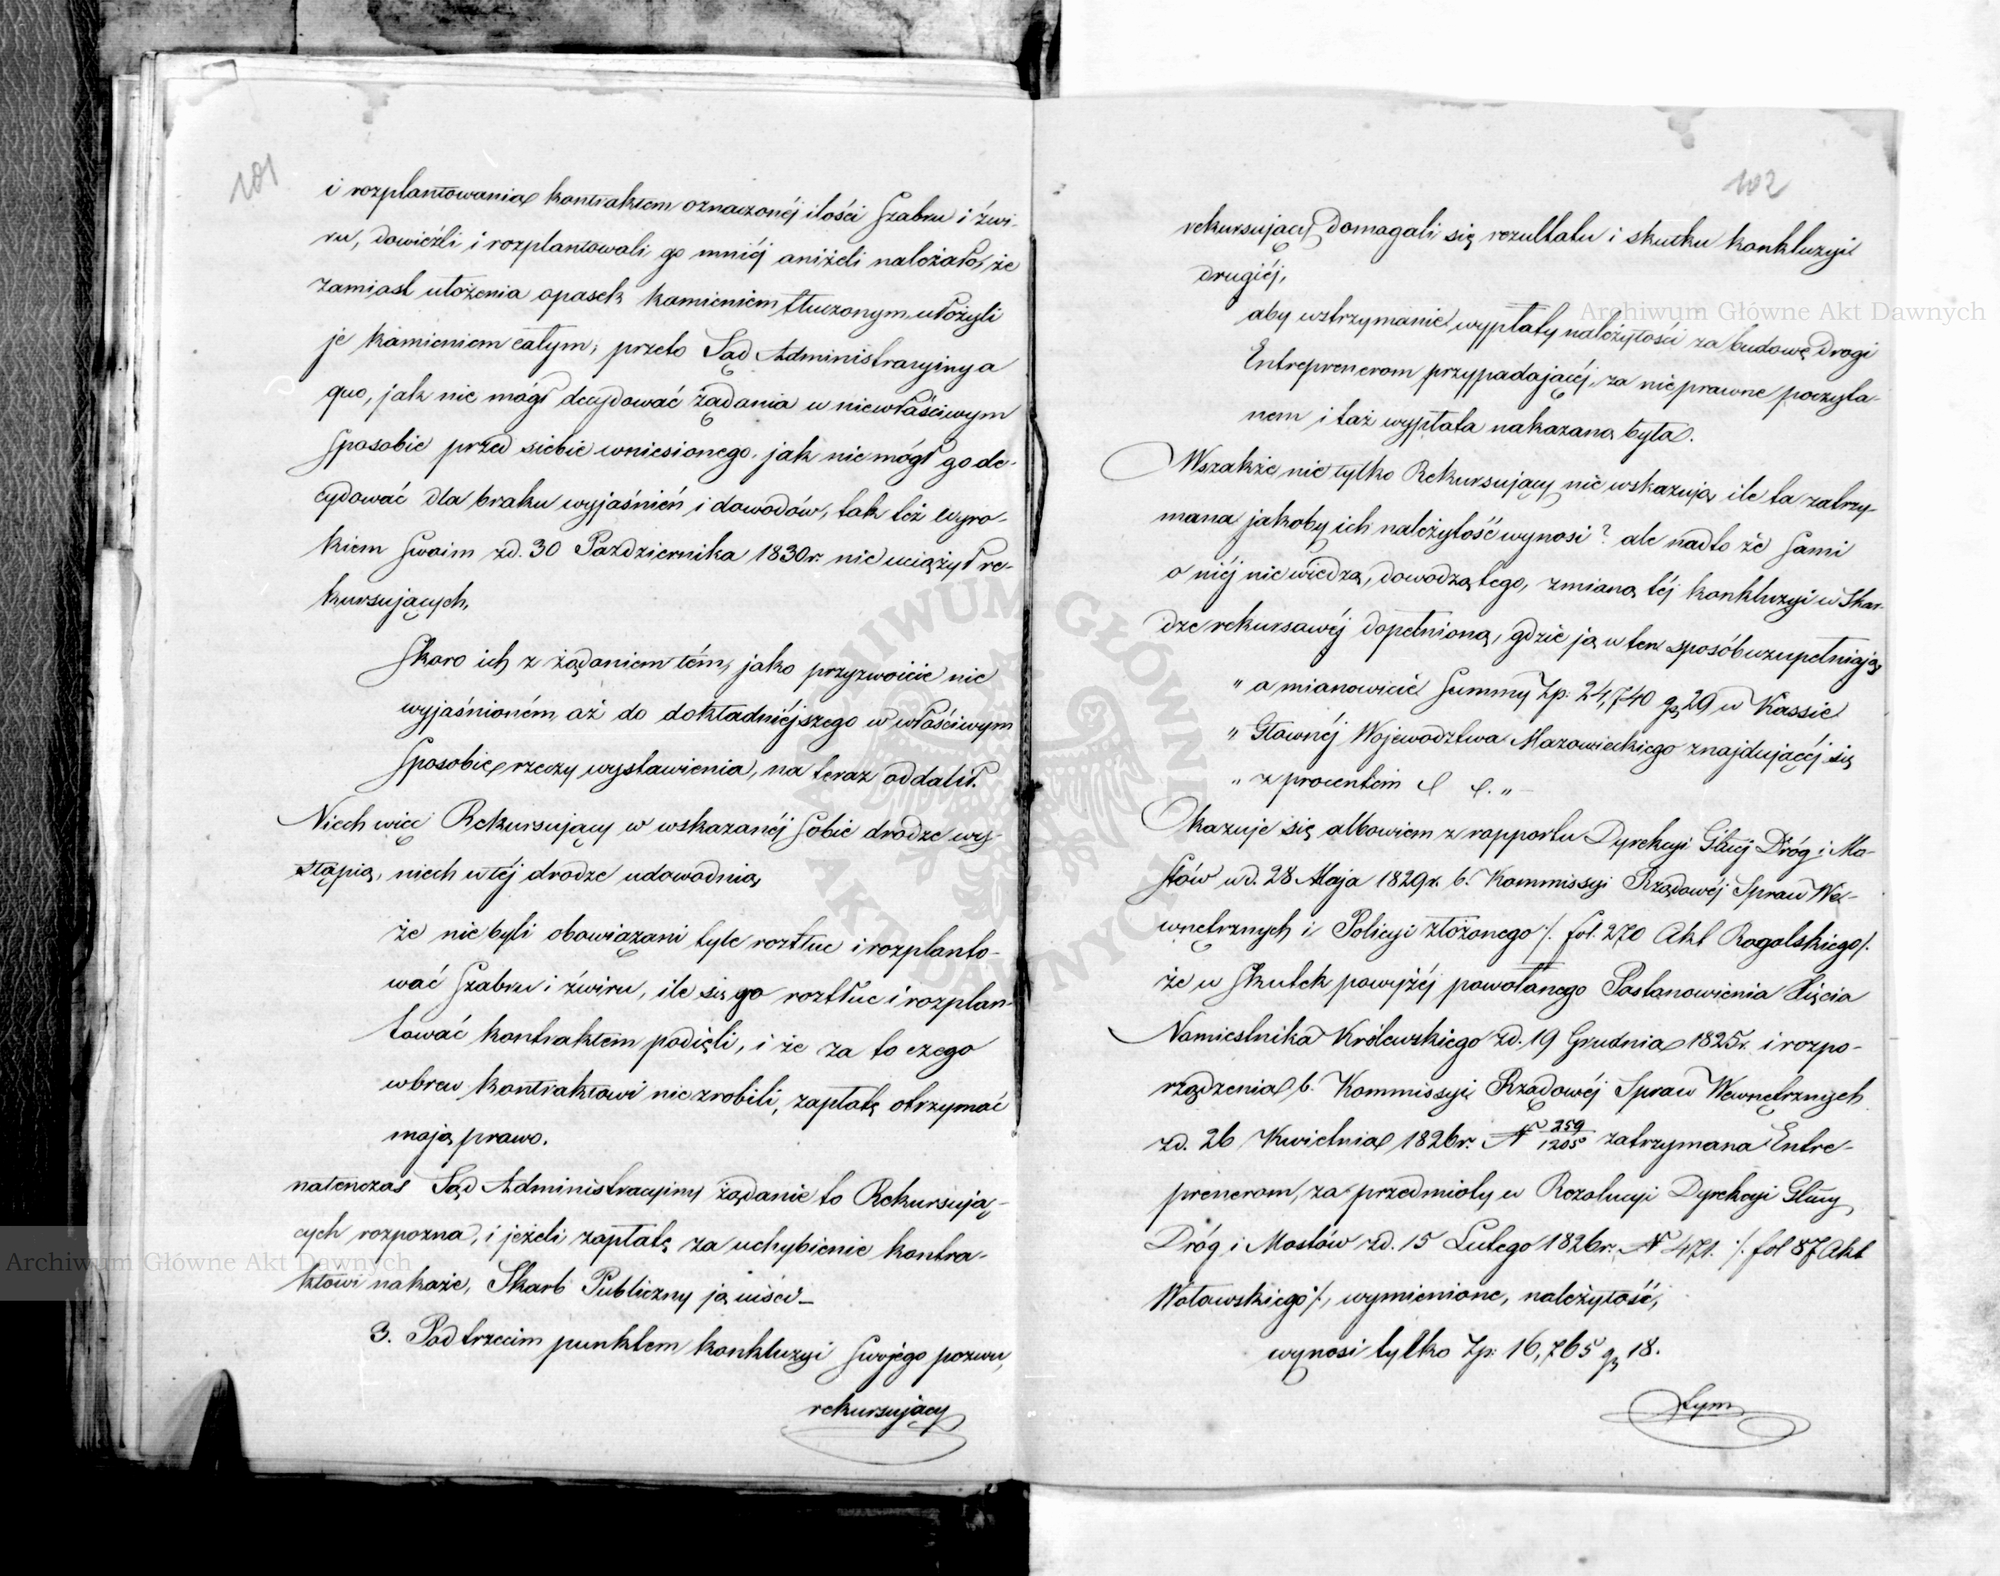 101
i rozplantowania kontraktem oznaczonéj ilości Szabru i żwi-
ru, dowieźli i rozplantowali go mniéj aniżeli należało, że
zamiast ułożenia opasek kamieniem tłuczonym, ułożyli
je kamieniem całym; przeto Sąd Administracyiny a
quo, jak nie mógł decydować żądania w niewłaściwym
Sposobie przed siebie wniesionego, jak nie mógł go de-
cydować dla braku wyjaśnień i dowodów, tak też Wyro-
kiem Swoim zd. 30 Października 1830r. nie uciążył re-
kursujących,
Skoro ich z żądaniem tém, jako przyzwoicie nie
wyjaśnioném, aż do dokładniéjszego w właściwym
Sposobie rzeczy wystawienia, na teraz oddalił.
Niech więc Rekursujący w wskazanéj Sobie drodze wy-
stąpią, niech w téj drodze udowodnią,
że nie byli obowiązani tyle roztłuc i rozplanto-
wać Szabru i żwiru, ile się go roztłuc i rozplan-
tować kontraktem podięli, i że za to czego
wbrew kontraktowi nie zrobili, zapłatę otrzymać
mają prawo.
natenczas Sąd Administracyiny żądanie to Rekursują-
cych rozpozna, i jeżeli zapłatę za uchybienie kontra-
ktowi nakaże, Skarb Publiczny ją uiści_
3. Pod trzecim punktem konkluzyi Swojego pozwu,
rekursujący
102
rekursujący domagali się rezultatu i skutku konkluzyi
drugiéj,
aby wstrzymanie wypłaty należytości za budowę drogi
Entreprenerom przypadającéj, za nieprawne poczyta-
nem i taż wypłata nakazaną była.
Wszakże nie tylko Rekursujący nie wskazują ile ta zatrzy-
mana jakoby ich należytość wynosi? ale nadto że Sami
o niéj nie wiedzą, dowodzą tego, zmianą téj konkluzyi w Skar-
dze rekursowéj dopełnioną, gdzie ją w ten sposób uzupełniają
" a mianowicie Summy Zp: 24,740 gr 29 w Kassie
" Głównéj Województwa Mazowieckiego znajdującéj się
" z procentem &. &. "
Okazuje się albowiem z rapportu Dyrekcyi Głnéj Dróg i Mo-
stów z d. 28 Maja 1829r. b. Kommissyi Rządowéj Spraw We-
wnętrznych i Policyi złożonego /. fol. 270 Akt Rogolskiego /.
że w Skutek powyżéj powołanego Postanowienia Xięcia
Namiestnika Królewskiego zd. 19 Grudnia 1825r. i rozpo-
rządzenia b. Kommissyi Rządowéj Spraw Wewnętrznych
zd. 26 Kwietnia 1826r. N 259/1205 zatrzymana Entre-
prenerom, za przedmioty w Rezolucyi Dyrekcyi Głnéj
Dróg i Mostów zd. 15 Lutego 1826r. N 471. /. fol 87 Akt
Wołowskiego /, wymienione, należytość,
wynosi tylko Zp: 16,765 gr 18.
tym
Archiwum Główne Akt Dawnych
Archiwum Główne Akt Dawnych
ARCHIWUM GŁÓWNE AKT DAWNYCH